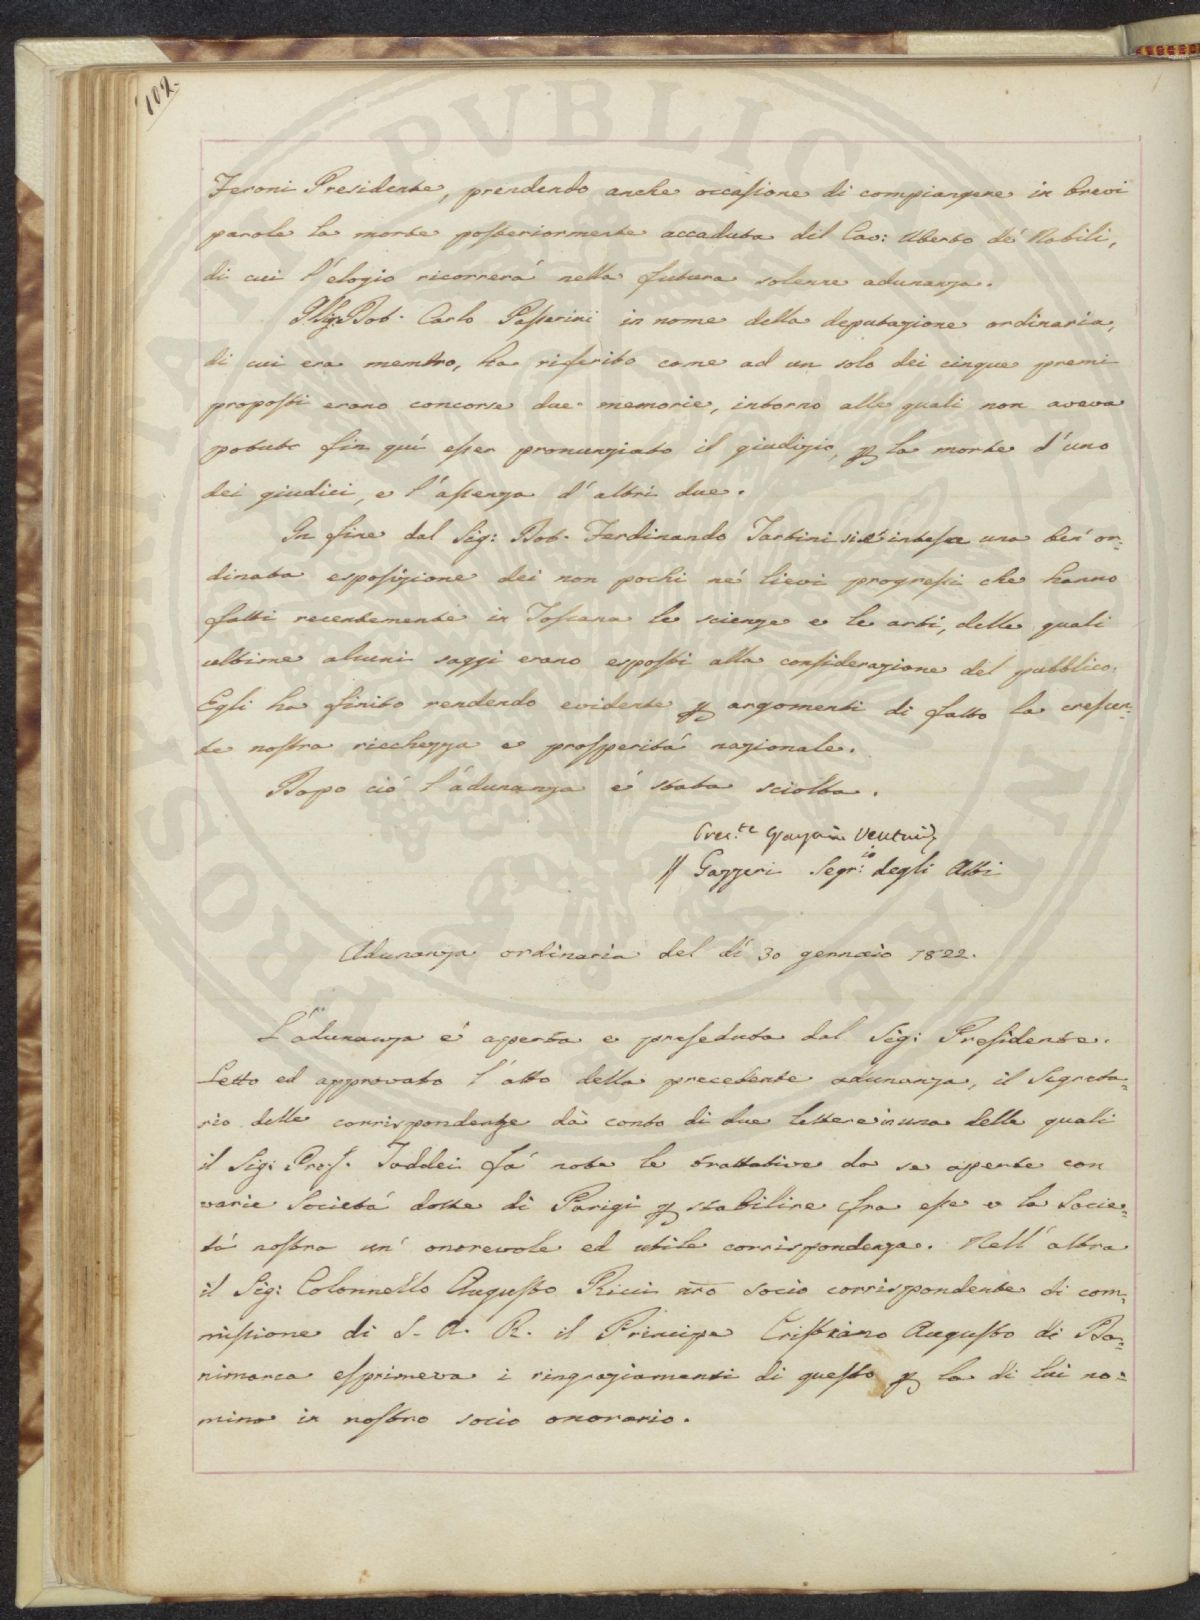 102.
Feroni Presidente, prendendo anche occasione di compiangere in brevi
parole la morte posteriormente accaduta del Cav: Uberto de' Nobili,
di cui l'elogio ricorrerá nella futura solenne adunanza.
Il Sig: Dot. Carlo Passerini in nome della deputazione ordinaria,
di cui era membro, ha riferito come ad un solo dei cinque premi
proposti erano concorse due memorie, intorno alle quali non aveva
potuto fin quí esser pronunziato il giudizio, p la morte d'uno
dei giudici, e l'assenza d'altri due.
In fine dal Sig: Dot. Ferdinando Tartini si é intesa una ben' or=
dinata esposizione dei non pochi né lievi progressi che hanno
fatti recentemente in Toscana le scienze e le arti, delle quali
ultime alcuni saggi erano esposti alla considerazione del pubblico.
Egli ha finito rendendo evidente p argomenti di fatto la crescen=
te nostra ricchezza e prosperitá nazionale.
Dopo ció l'adunanza é stata sciolta.
Pres.te Venturi
Gazzeri Segr:io degli Atti
Adunanza ordinaria del dí 30 gennaio 1822.
L'adunanza é aperta e preseduta dal Sig: Presidente.
Letto ed approvato l'atto della precedente adunanza, il Segreta=
rio delle corrispondenze dà conto di due lettere in una delle quali
il Sig: Prof. Taddei fá note le trattative da se aperte con
varie Societá dotte di Parigi p stabilire fra esse e la Socie=
tá nostra un' onorevole ed utile corrispondenza. Nell' altra
il Sig: Colonnello Augusto Ricci nro socio corrispondente di com=
missione di S. A. R. il Principe Cristiano Augusto di Da=
nimarca esprimeva i ringraziamenti di questo p la di lui no=
mina in nostro socio onorario.